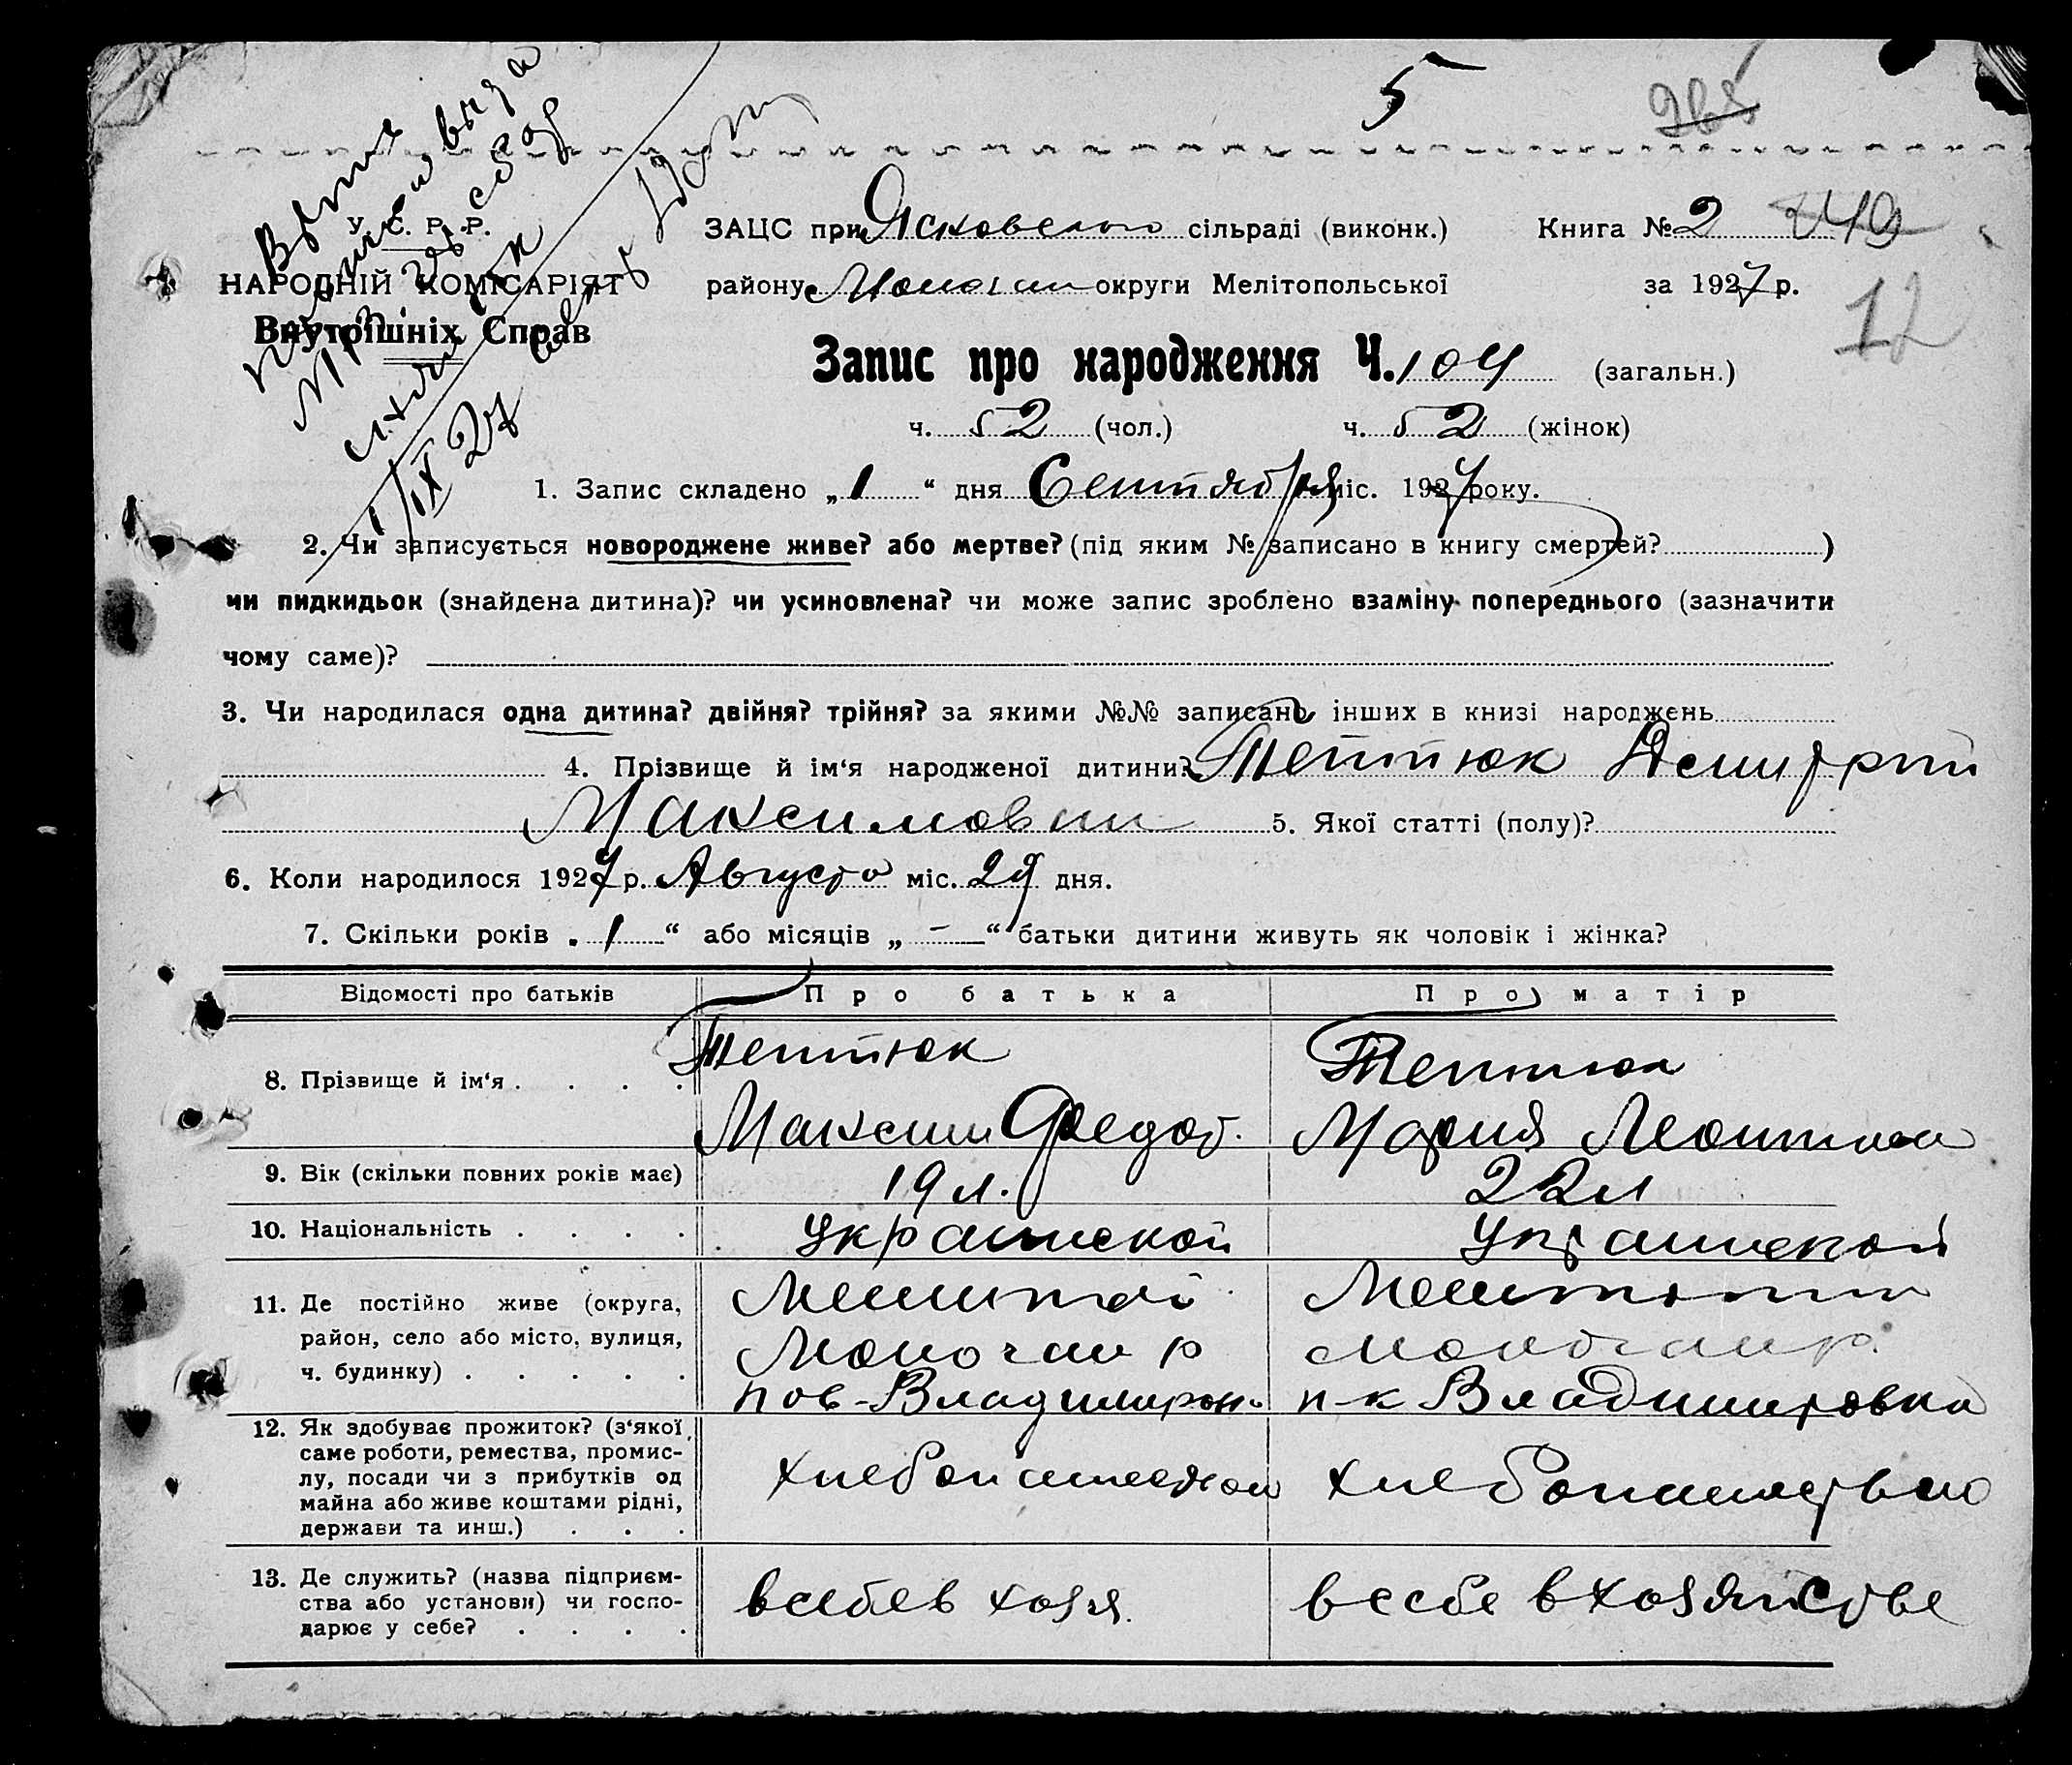 5
У. С. Р. Р.
НАРОДНІЙ КОМІСАРІЯТ
Внутрішніх Справ
1/IX 27
ЗАЦС при сільраді (виконк.) Книга № 2
району округи Мелітопольської за 1927 р.
12
Запис про народження Ч. 104 (загальн.)
ч. 52 (чол.) ч. 52 (жінок)
1. Запис складено „1“ дня Сентября міс. 1927 року.
2. Чи записується новороджене живе? або мертве? (під яким № записано в книгу смертей? )
чи пидкидьок (знайдена дитина)? чи усиновлена? чи може запис зроблено взаміну попереднього (зазначити
чому саме)?
3. Чи народилася одна дитина? двійня? трійня? за якими №№ записано інших в книзі народжень
4. Прізвище й ім‘я народженої дитини? Тептюк Дмитрий
Максимович 5. Якої статті (полу)?
6. Коли народилося 1927 р. Августа міс. 29 дня.
7. Скільки років „1“ або місяців „—“ батьки дитини живуть як чоловік і жінка?
Відомості про батьків Про батька Про матір
8. Прізвище й ім‘я Тептюк Тептюк
Максим Федор. Мария
9. Вік (скільки повних років має) 19 л. 22 л
10. Національність Украинской Украинской
11. Де постійно живе (округа,
район, село або місто, вулиця,
ч. будинку)
Владимировка
12. Як здобуває прожиток? (з‘якої
саме роботи, ремества, промис-
лу, посади чи з прибутків од
майна або живе коштами рідні,
держави та инш.)
Хлебопашеством Хлебопашеством
13. Де служить? (назва підприєм-
ства або установи) чи госпо-
дарює у себе?
в себе в хозя. в себе в хозяйстве